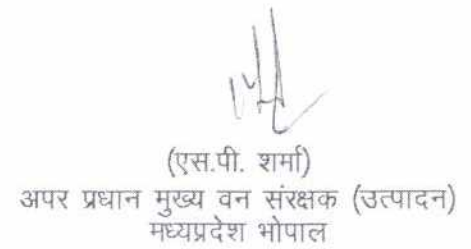 (एस.पी. शर्मा)
अपर प्रधान मुख्य वन संरक्षक (उत्पादन)
मध्यप्रदेश भोपाल